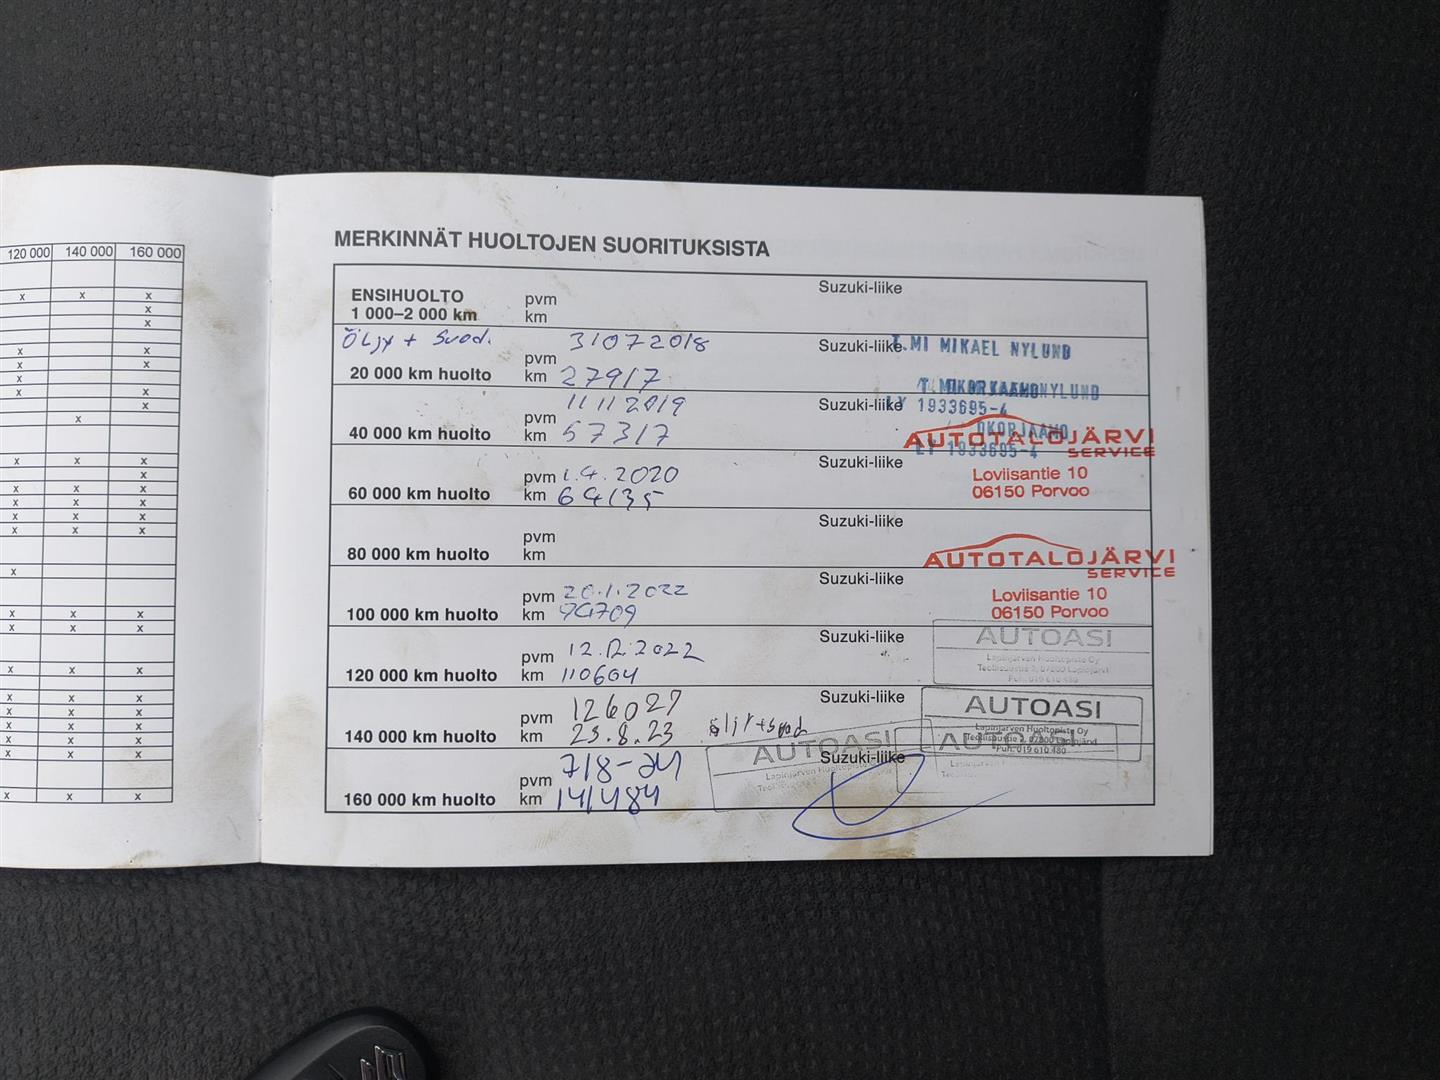 120 000 140 000 160 000
MERKINNÄT HUOLTOJEN SUORITUKSISTA
ENSIHUOLTO pvm Suzuki-liike
1 000–2 000 km km
Öljy + Suod. 31072018
pvm Suzuki-liike T.MI MIKAEL NYLUND
20 000 km huolto km 27917
11112019
pvm Suzuki-liike LY 1933695-4
40 000 km huolto km 57317
AUTOTALOJÄRVI
SERVICE
pvm 1.4.2020 Suzuki-liike Loviisantie 10
60 000 km huolto km 64135 06150 Porvoo
pvm Suzuki-liike
80 000 km huolto km AUTOTALOJÄRVI
SERVICE
pvm 20.1.2022 Suzuki-liike Loviisantie 10
100 000 km huolto km 94709 06150 Porvoo
pvm 12.12.2022 Suzuki-liike AUTOASI
120 000 km huolto km 110604 Lapinjärven Huoltopiste Oy
pvm 126027 Suzuki-liike AUTOASI
140 000 km huolto km 23.8.23 öljyt+suod
Lapinjärven Huoltopiste Oy
Puh. 019 610 480
AUTOASI AUTOASI
pvm 7/8-24 Suzuki-liike
160 000 km huolto km 141484